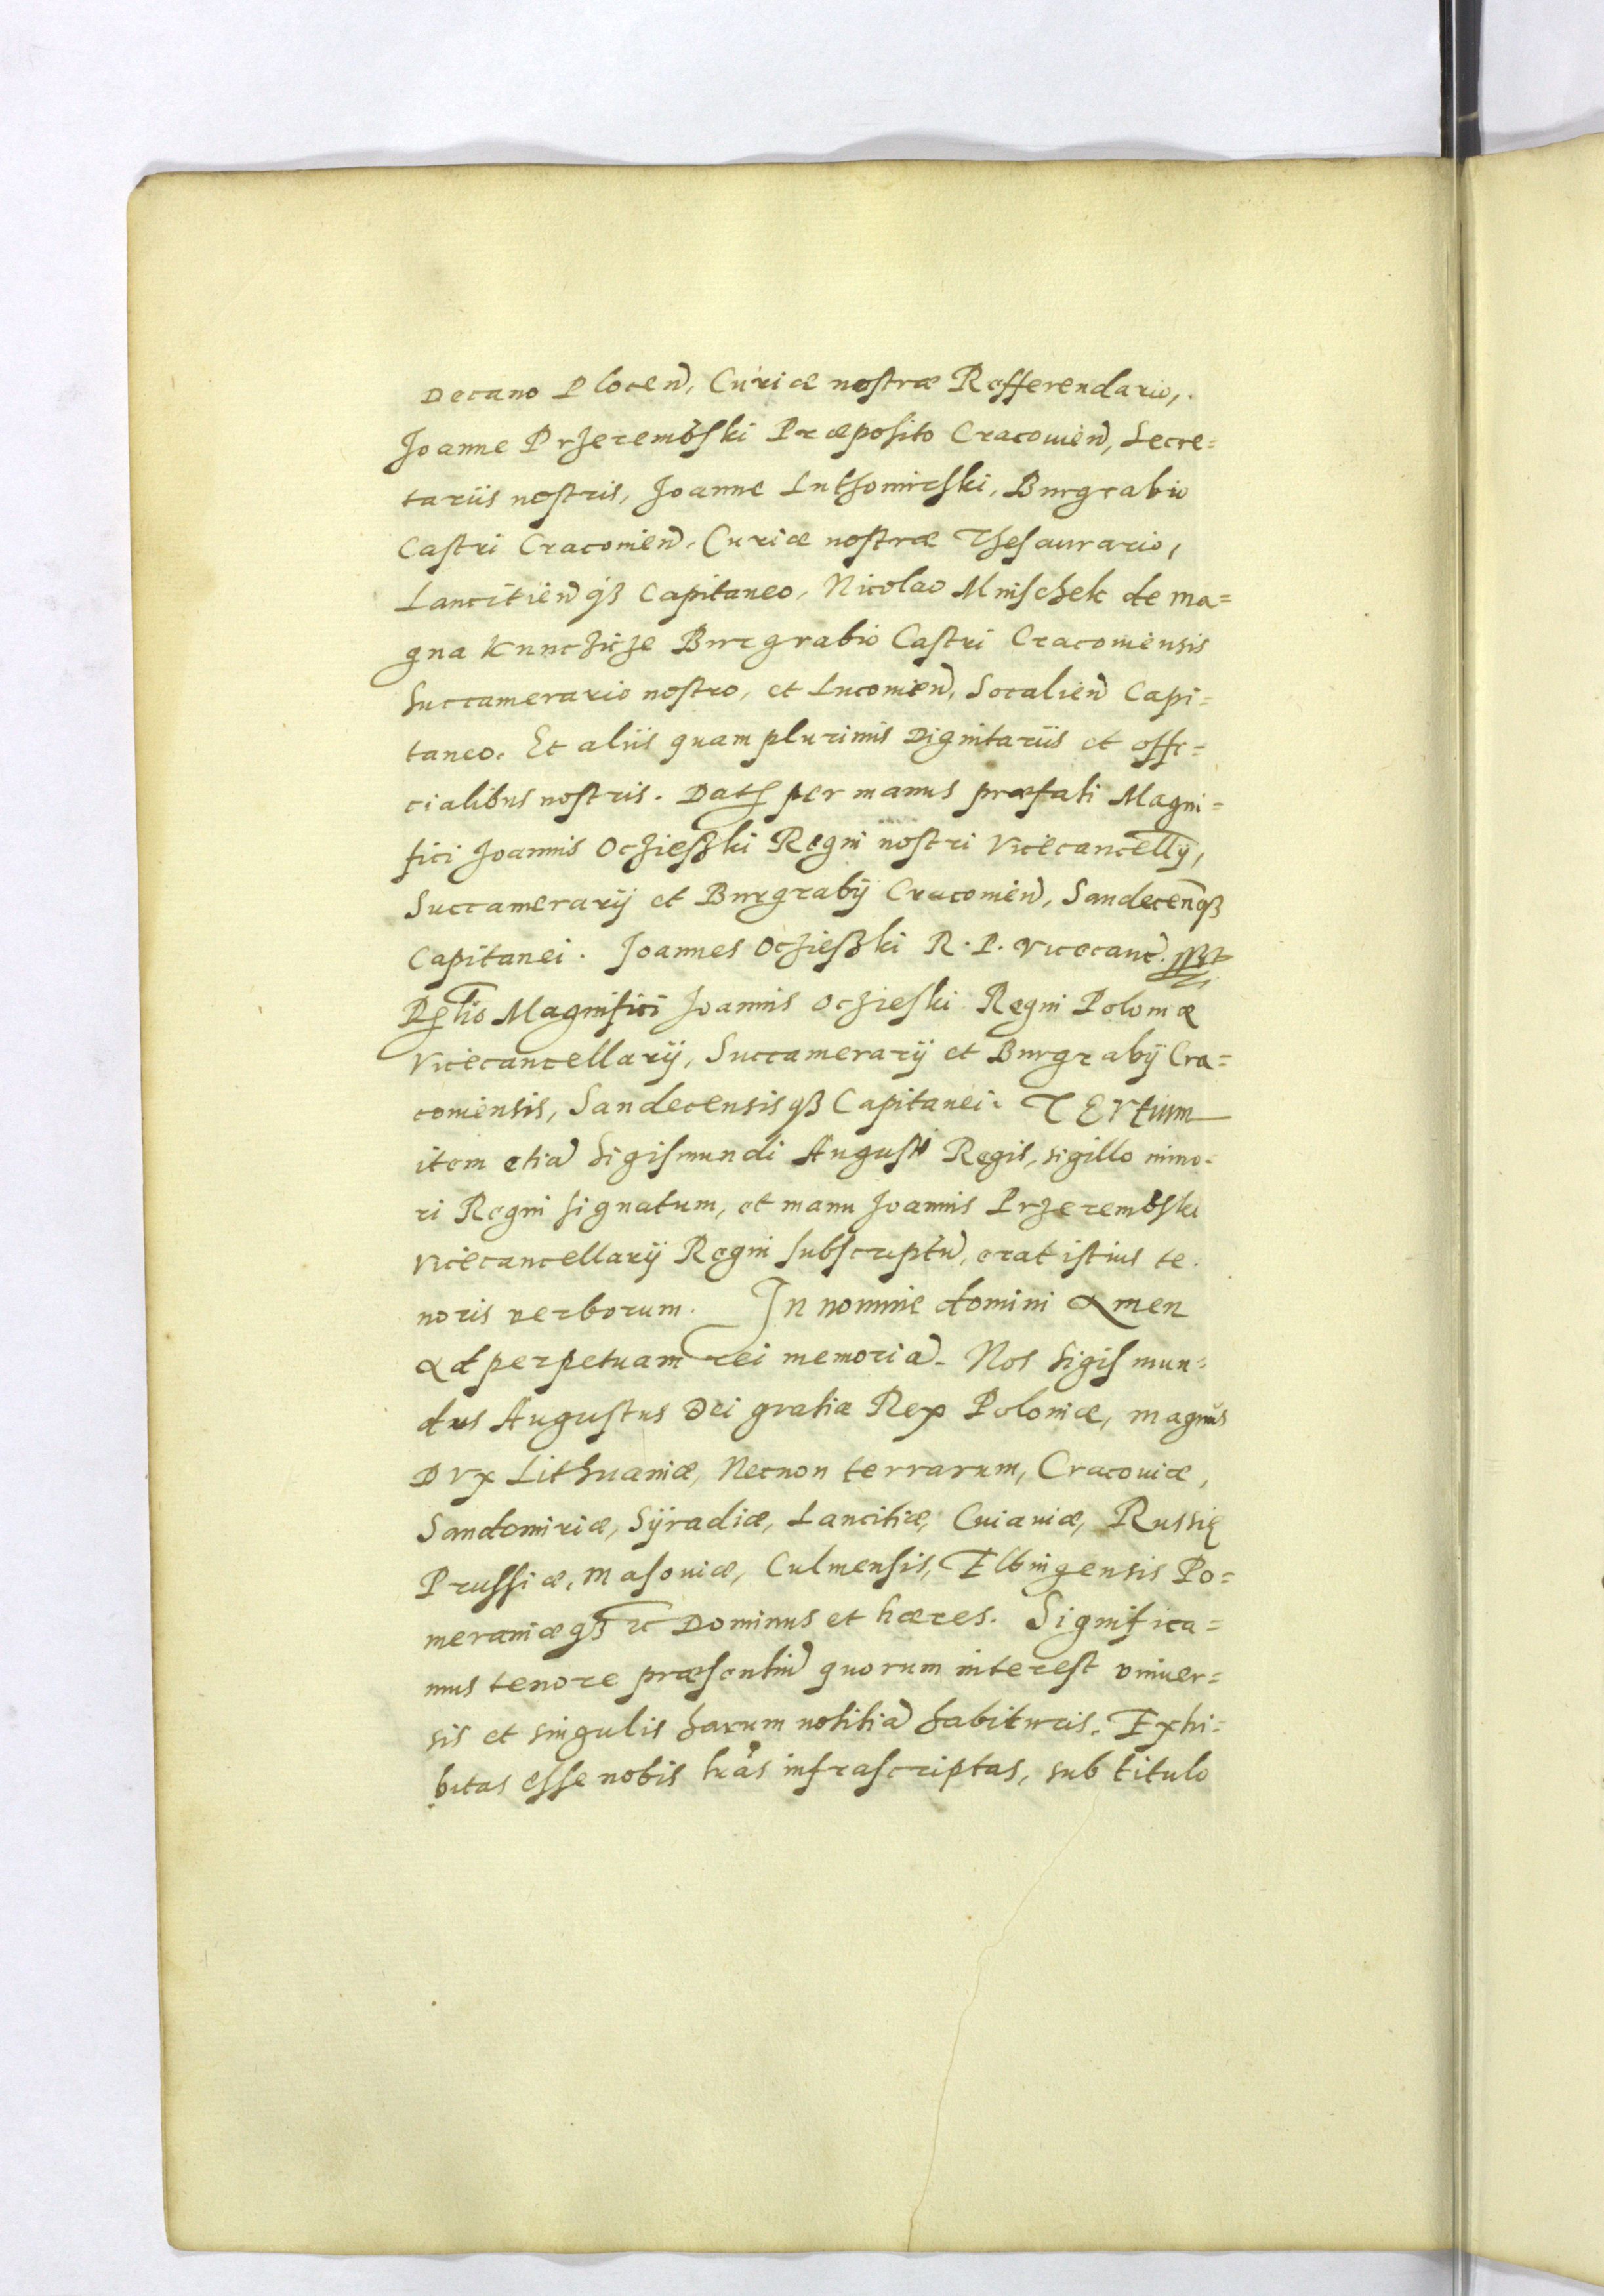 Decano Plocen, Curiæ nostræ Refferendario,
Joanne Przerembski Præposito Cracouien, Secre=
tariis nostris, Joanne Luthomirski, Burgrabio
Castri Cracouien. Curiæ nostræ Thesaurario,
Lancitien qȝ Capitaneo, Nicolao Mnischek de ma=
gna Kunczicze Burgrabio Castri Cracouiensis
Succamerario nostro, et Lucouien, Socalien Capi=
taneo. Et aliis quam plurimis Dignitariis et offi=
cialibus nostris. Dat per manus præfati Magni=
fici Joannis Oczieszki Regni nostri Vicecancellij,
Succamerarij et Burgrabij Cracouien, Sandecenqȝ
Capitanei. Joannes Oczieszki R. P. Vicecanc.
Rlio Magnifici Joannis Oczieski Regni Poloniæ
Vicecancellarij, Succamerarij et Burgrabij Cra=
couiensis, Sandecensis qȝ Capitanei. TERtium
item etiã Sigismundi Augusti Regis, sigillo mino-
ri Regni signatum, et manu Joannis Przerembski
Vicecancellarij Regni subscriptũ, erat istius te.
noris verborum. In nomine domini Amen
Ad perpetuam rei memoriã. Nos Sigismun=
dus Augustus Dei gratia Rex Poloniæ, magnus
Dvx Lithuaniæ, Necnon terrarum, Cracouiæ,
Sandomiriæ, Syradiæ, Lancitiæ, Cuiauiæ, Russię
Prussiæ, Masouiæ, Culmensis, Elbingensis Po=
meraniæqȝ zc Dominus et hæres. Significa=
mus tenore præsentiũ quorum interest vniuer=
sis et singulis harum notitiã habituris. Exhi=
bitas esse nobis lrãs infrascriptas, sub titulo